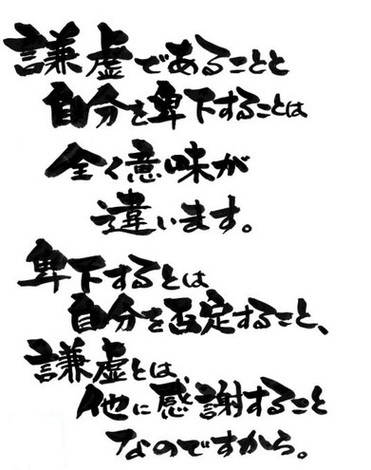 謙虚であることと
自分を卑下することは
全く意味が
違います。
卑下するとは
自分を否定すること、
謙虚とは、
他に感謝すること
なのですから。